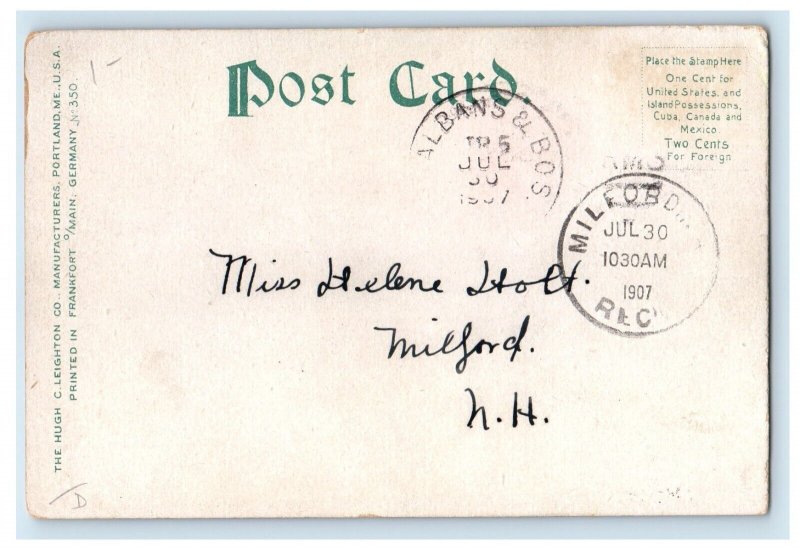 Post Card.
Place the Stamp Here
One Cent for
United States, and
Island Possessions,
Cuba, Canada and
Mexico
Two Cents
For Foreign
ALBANS & BOS.
TR 5
JUL
30
1907
RMS
MILFORD
JUL 30
1030AM
1907
REC'
Miss Helene Holt.
Milford.
N.H.
THE HUGH C. LEIGHTON CO., MANUFACTURERS, PORTLAND, ME., U.S.A.
PRINTED IN FRANKFORT o/MAIN, GERMANY No 350.
1-
D